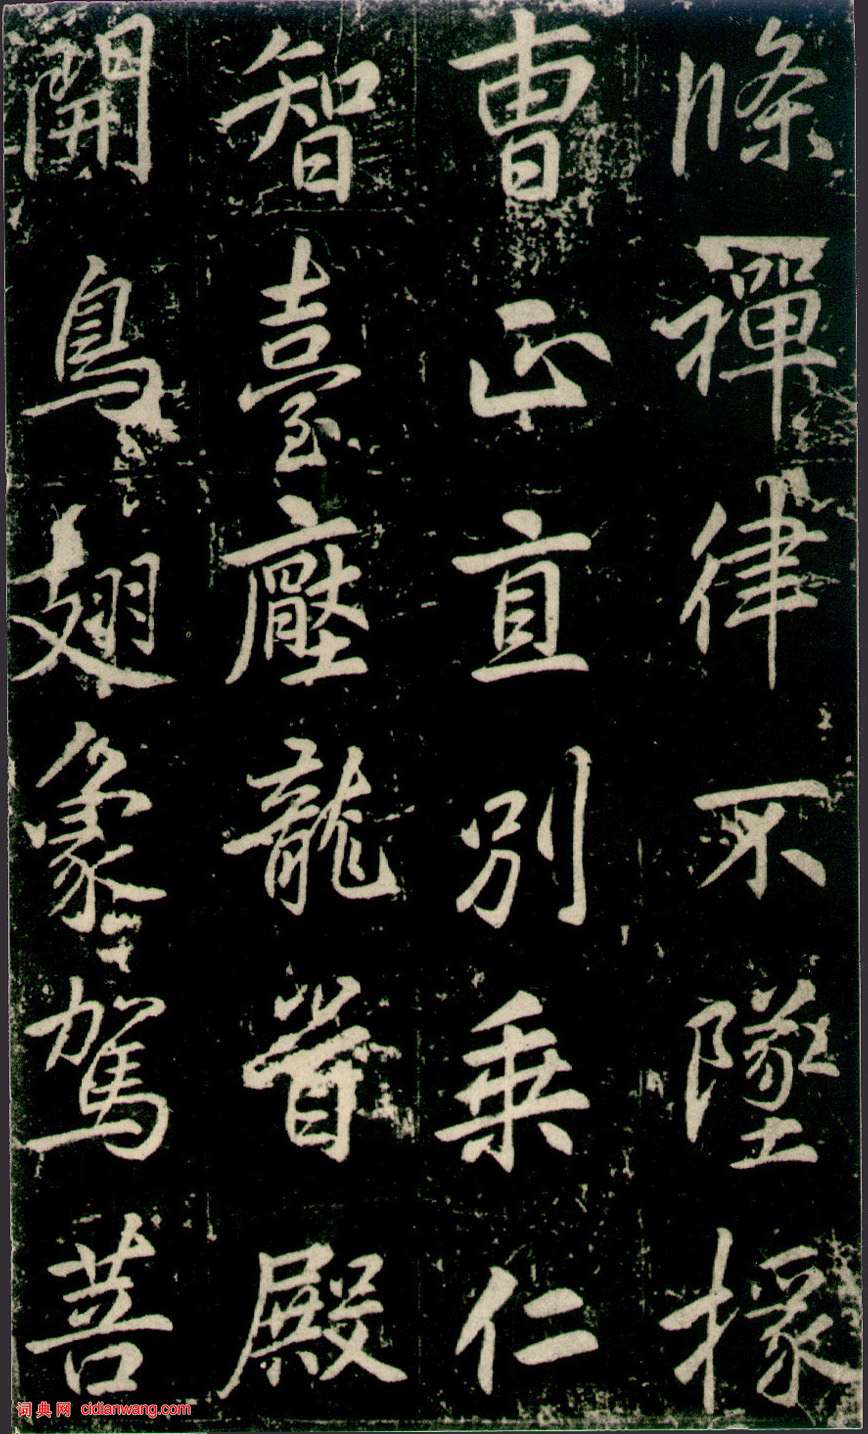 條禪律不墜掾
曹正直別乗仁
智臺壓龍首殿
開鳥翅象駕菩
词典网 cidianwang.com